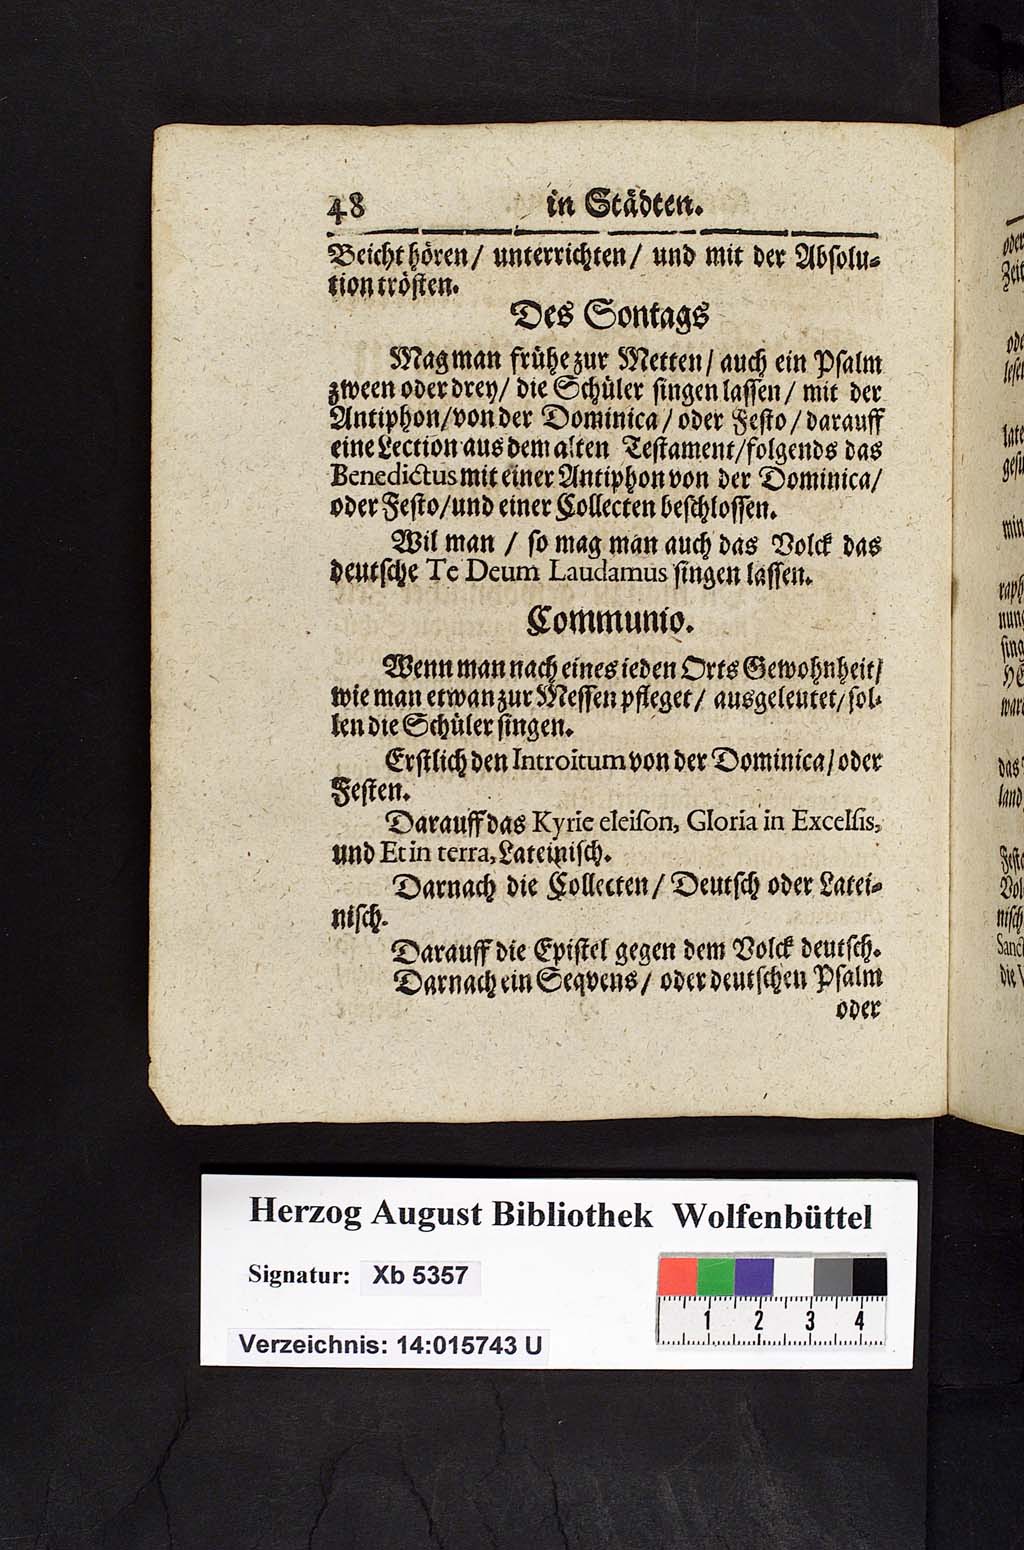 48 in Städten.
Beicht hören/ unterrichten/ und mit der Absolu⸗
tion trösten.
Des Sontags
Mag man frühe zur Metten/ auch ein Psalm
zween oder drey/ die Schüler singen lassen/ mit der
Antiphon/ von der Dominica/ oder Festo/ darauff
eine Lection aus dem alten Testament/ folgends das
Benedictus mit einer Antiphon von der Dominica/
oder Festo/ und einer Collecten beschlossen.
Wil man / so mag man auch das Volck das
deutsche Te Deum Laudamus singen lassen.
Communio.
Wenn man nach eines ieden Orts Gewohnheit/
wie man etwan zur Messen pfleget/ ausgeleutet/ sol⸗
len die Schüler singen.
Erstlich den Introitum von der Dominica/ oder
Festen.
Darauff das Kyrie eleiſon, Gloria in Excelſis,
und Et in terra, Lateinisch.
Darnach die Collecten/ Deutsch oder Latei⸗
nisch.
Darauff die Epistel gegen dem Volck deutsch.
Darnach ein Seqvens/ oder deutschen Psalm
oder
Herzog August Bibliothek Wolfenbüttel
Signatur: Xb 5357
Verzeichnis: 14:015743 U
1 2 3 4